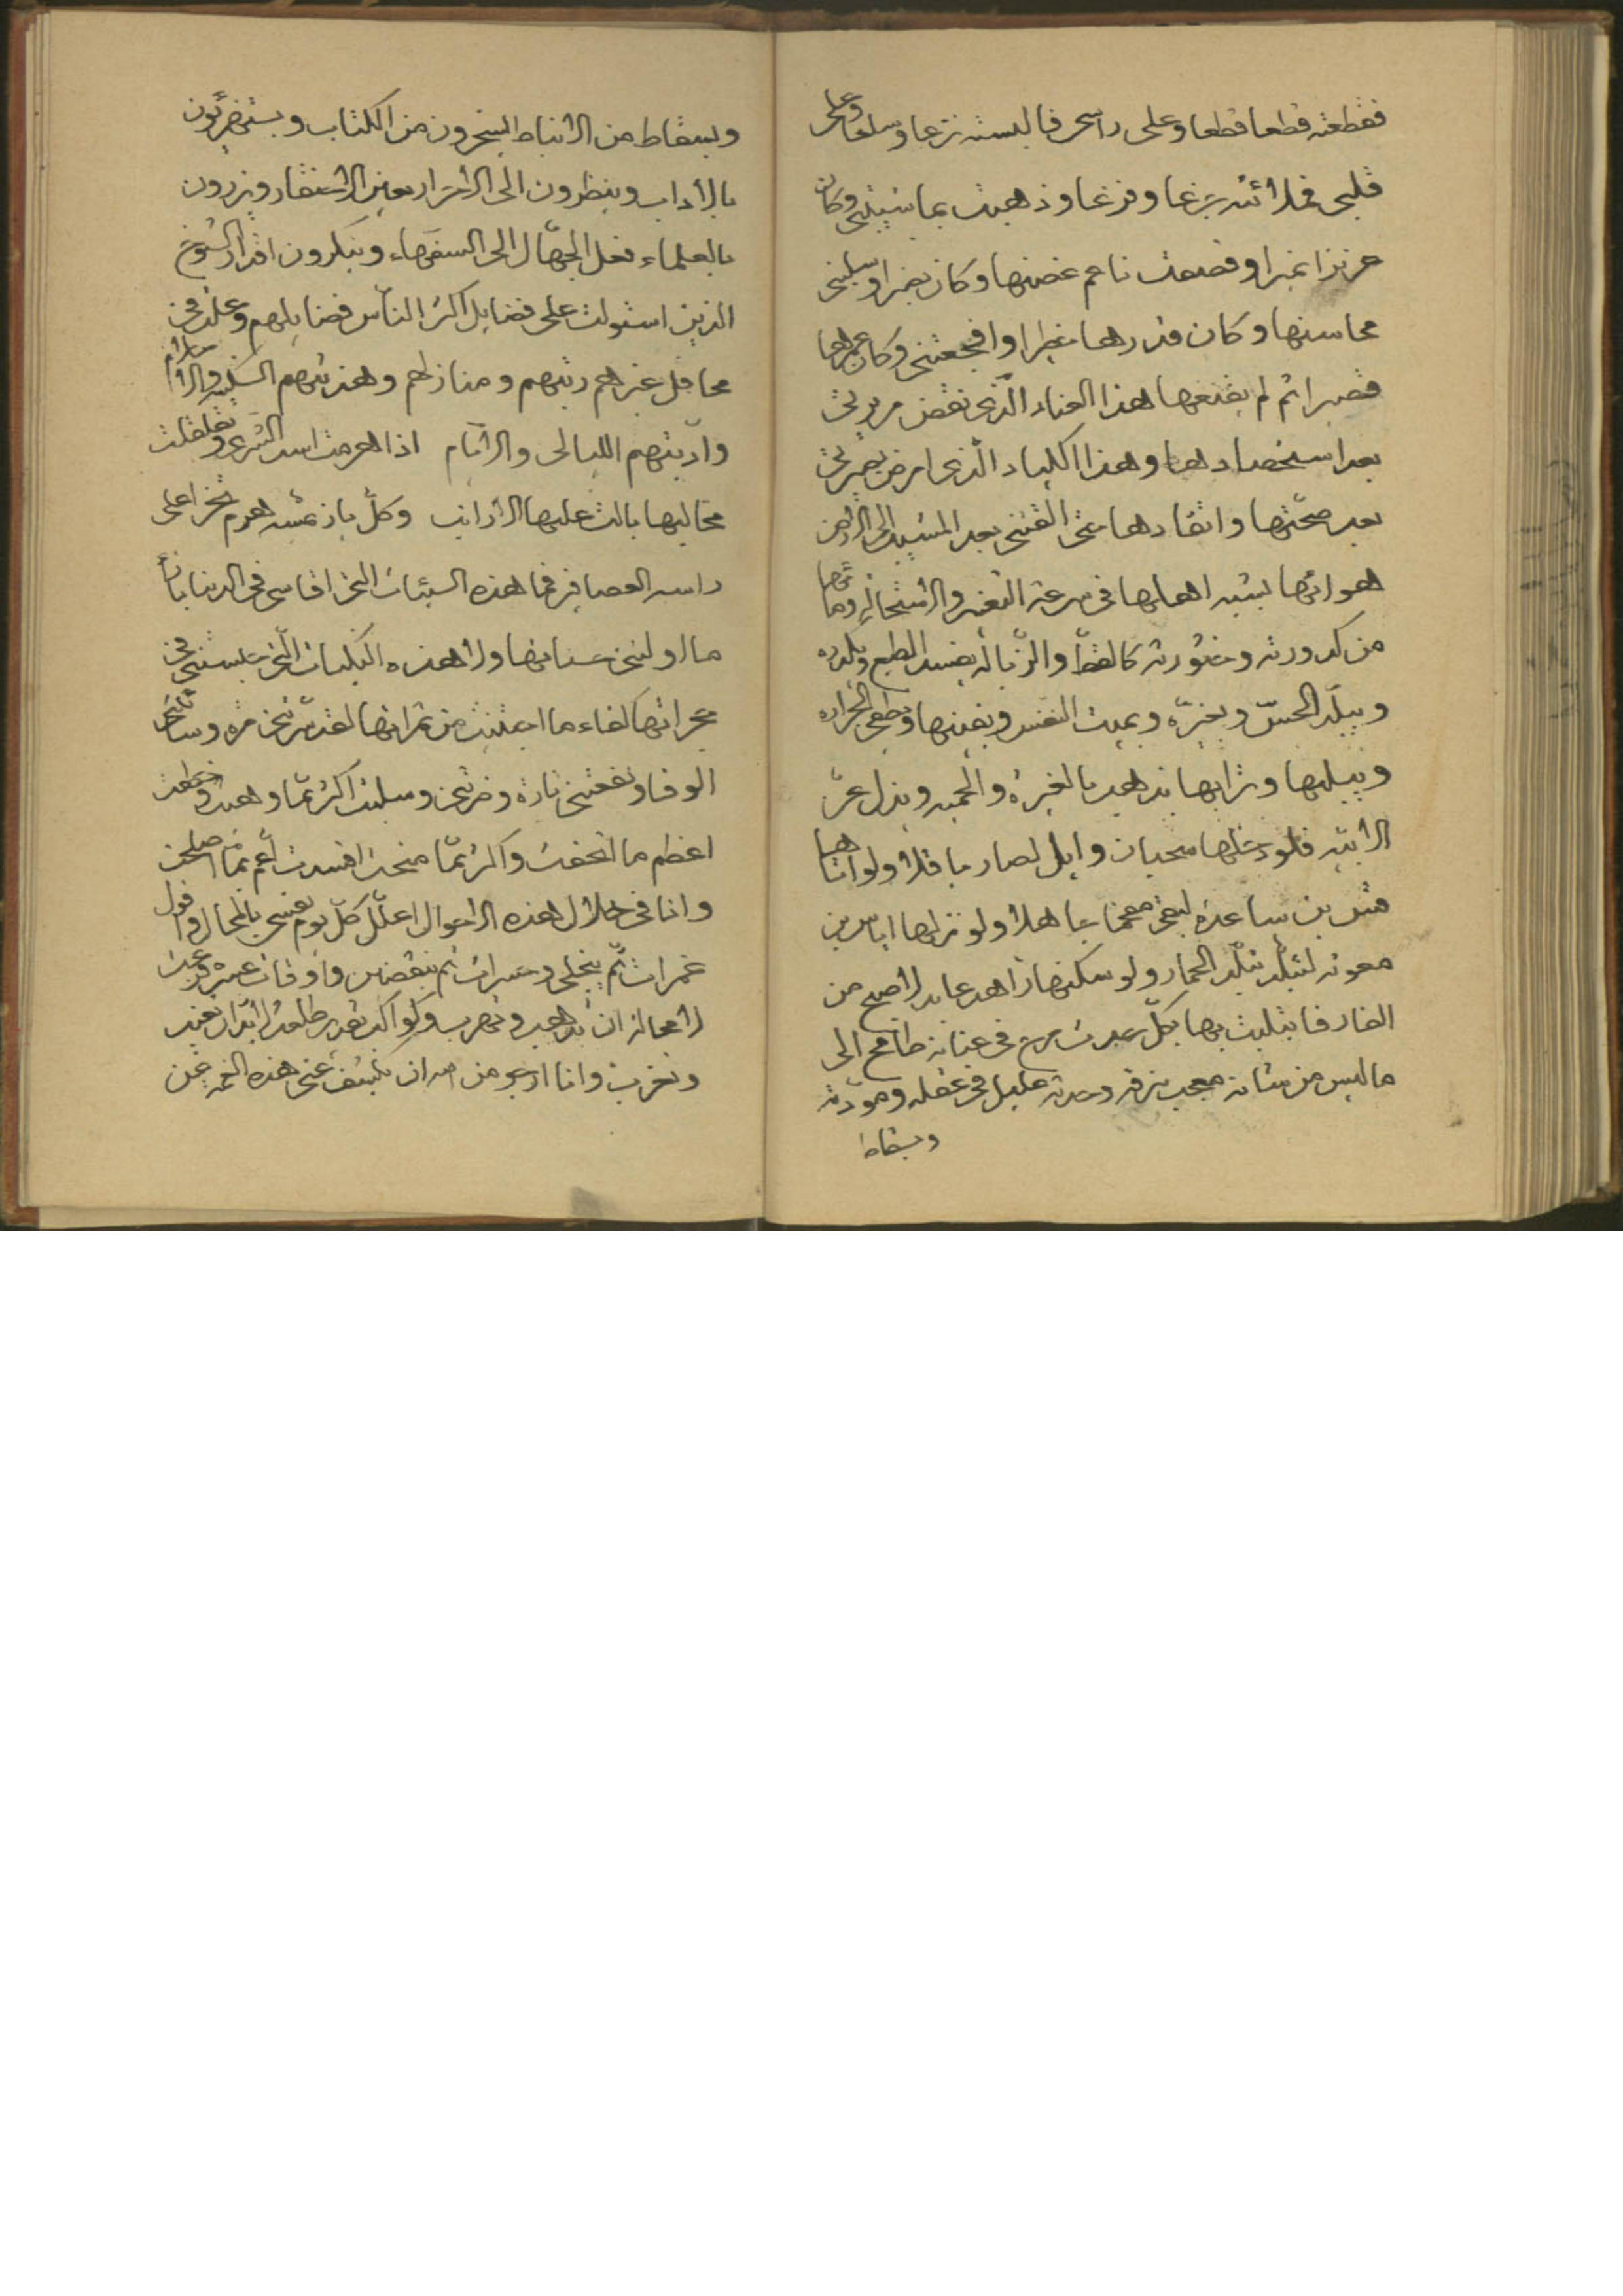 فقطعته قطعا قطعا وعلى راسى فالبسته نزعا وسلعا وعلى
قلبى فملائته جزعا وفزعا وذهبت بما شيبتى وكان
عزيزا نميرا وقصعت ناعم غصنها وكان نضيرا وسلبنى
محاسنها وكان قدرها خطيرا وافجعتنى وكان عمرها
قصيرا ثم لم يقنعها هذا العناد الذى نقض مريرتى
بعد استحصادها وهذا الكياد الذى امرض بصيرتى
بعد صحتها واتقادها حتى القتنى بعد المشيب الى ارض
هوائها يشبه اهلها فى سرعة التغير والاستحالة وماؤها
من كدورته وخثورته كالقطّ والزبالة يفسد الطبع ويكدره
ويبلّد الحسّ ويخدّره ويميت النفس ويفنيها ويطفى الحرارة
ويبليها وترابها يذهب بالغيرة والحمية ويذل عزّ
الابية فلو دخلها سحبان وايل لصار باقلا ولو اتاها
قس بن ساعدة لبقى مفحما جاهلا ولو نزلها اياس بن
معوية لتبلّد تبلّد الحمار ولو سكنها زاهد عابد لاصبح من
الفار فابتليت بها بكلّ حدث مرح فى عنانه طامح الى
ما ليس من شانه معجب بنزقه وحدته عليل فى عقله ومودّته
وبسقاط
وبسقاط من الانباط يسخرون من الكتاب ويستهزئون
بالاداب وينظرون الى الاحرار بعين الاحتقار ويزرون
بالعلماء فعل الجهّال الى السفهاء وينكرون اقدار الشيوخ
الذين استولت على فضايل اكثر الناس فضايلهم وعلت فى
محافل غيرهم رتبهم ومنازلهم وهذبتهم السكينة والاسلام
وادّبتهم الليالى والايّام اذا هرمت اسد الشرى وتقلقلت
مخالبها بالت عليها الارانب وكلّ باز يمسه هرم تخرا على
راسه العصافير فما هذه السيئات التى اقاسى فى الدنيا بازاء
ما اولتنى حسناتها ولا هذه النكبات التى حبستنى فى
حجراتها كفاء ما اجتنيت من ثمراتها لقد سرّتنى مرة وساءتنى
الوفا ونفعتنى تارة وضرّتنى وسلبت اكثر ممّا وهبت وخطفت
اعظم ما اتحفت واكثر ممّا منحت افسدت اعم ممّا اصلحت
وانا فى خلال هذه الاحوال اعلّل كلّ يوم نفسى بالمحال واقول
غمرات ثم ينجلى وحسرات ثم ينقضى واوقات عسرة قربت
لا محالة ان تذهب وتهرب وكواكب نحس طلعت لا بدّ ان تغيب
وتغرب وانا ارجو من الله ان يكشف عنى هذه الغمة عن